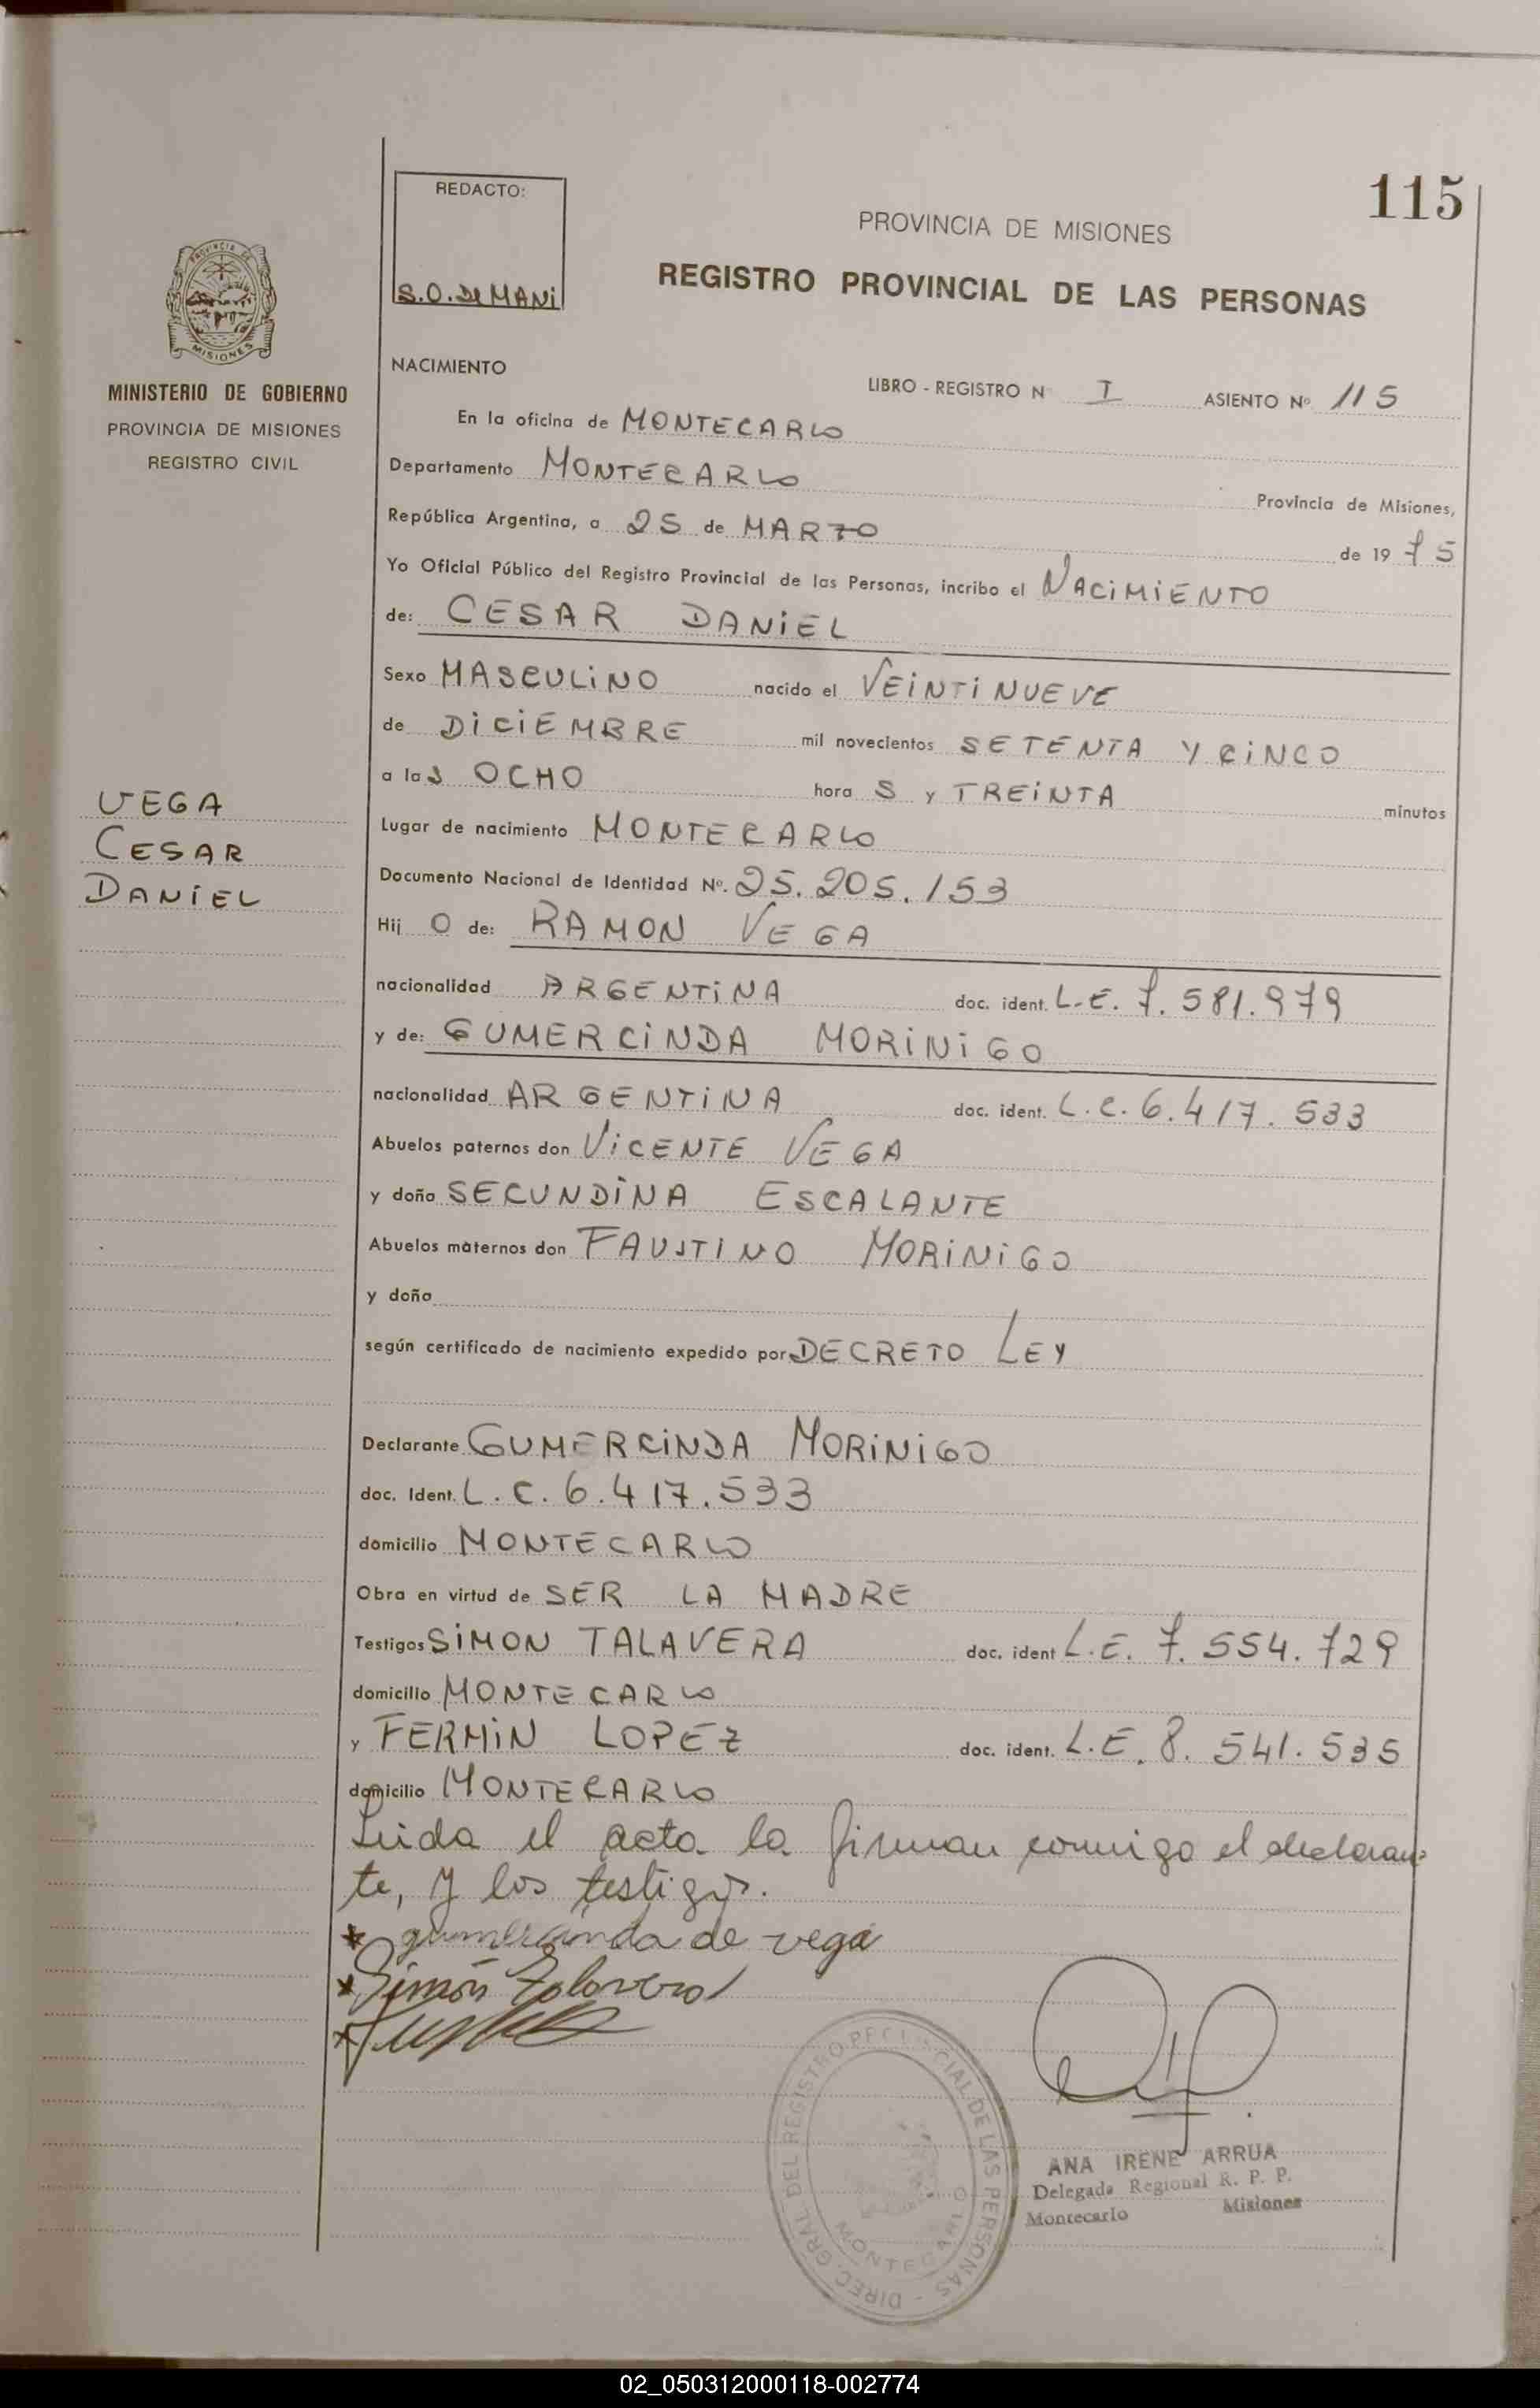 115
REDACTO:
S.O. De MANi
PROVINCIA DE MISIONES
REGISTRO PROVINCIAL DE LAS PERSONAS
PROVINCIA DE
MISIONES
MINISTERIO DE GOBIERNO
PROVINCIA DE MISIONES
REGISTRO CIVIL
NACIMIENTO
LIBRO - REGISTRO N I ASIENTO Nº 115
En la oficina de MONTECARLO
Departamento MONTECARLO
Provincia de Misiones,
República Argentina, a 25 de MARZO de 1975
Yo Oficial Público del Registro Provincial de las Personas, incribo el NACiMiENTO
de: CESAR DANiEL
Sexo MASCULiNO nacido el VEiNTiNUEVE
de DiCiEMBRE mil novecientos SETENTA Y CiNCO
a las OCHO hora S y TREiNTA minutos
VEGA
CESAR
DANiEL
Lugar de nacimiento MONTECARLO
Documento Nacional de Identidad Nº. 25.205.153
Hij O de: RAMON VEGA
nacionalidad ARGENTiNA doc. ident. L.E. 7.581.979
y de: GUMERCiNDA MORiNiGO
nacionalidad ARGENTiNA doc. ident. L.C. 6.417.533
Abuelos paternos don ViCENTE VEGA
y doña SECUNDiNA ESCALANTE
Abuelos maternos don FAUSTINO MORiNiGO
y doña
según certificado de nacimiento expedido por DECRETO LEY
Declarante GUMERCiNDA MORiNiGO
doc. Ident. L.C. 6.417.533
domicilio MONTECARLO
Obra en virtud de SER LA MADRE
Testigos SiMON TALAVERA doc. ident L.E. 7.554.729
domicilio MONTECARLO
y FERMiN LOPEZ doc. ident. L.E. 8.541.535
domicilio MONTECARLO
Leida el acta la firman conmigo el declaran-
te, y los testigos.
* gumercinda de vega
* Simón Talavera
DIREC. GRAL DEL REGISTRO PROVINCIAL DE LAS PERSONAS - MONTECARLO
ANA IRENE ARRUA
Delegada Regional R. P. P.
Montecarlo Misiones
02_050312000118-002774